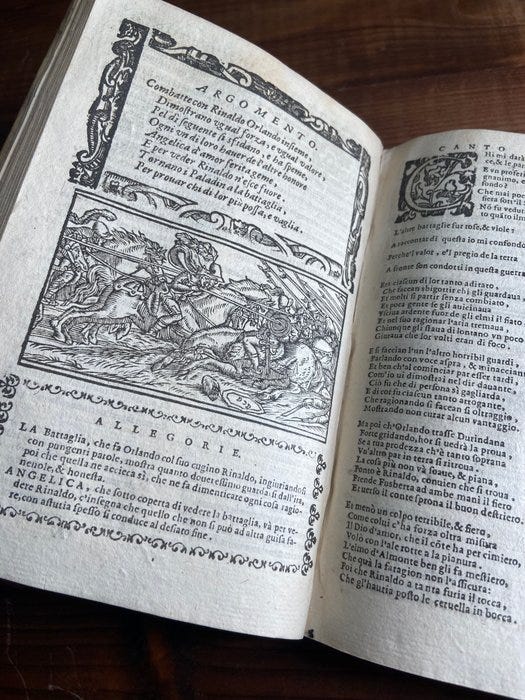 ARGOMENTO.
Combatte con Rinaldo Orlando insieme,
Dimostrano ugual forza, e ugual valore;
Pel dì seguente si sfidano, e ha speme,
Ogn'un di loro haver de l'altro honore
Angelica d'amor ferita geme,
E per veder Rinaldo n'esce fuore.
Tornano i Paladin a la battaglia,
Per provar chi di lor più possa, e vaglia.
ALLEGORIE.
LA Battaglia, che fa Orlando col suo cugino Rinaldo, ingiuriandosi
con pungenti parole, mostra quanto dovressimo guardarsi dall'ira,
poi che quella ne accieca sì, che ne fa dimenticare ogni cosa ragio-
nevole, & honesta.
ANGELICA, che sotto coperta di vedere la battaglia, và per ve-
dere Rinaldo, c'insegna che quello che non si può ad altra guisa fa-
re, con astutia spesso si conduce al desiato fine.
CANTO
Hi mi darà
ce, & le par
E un proferir
gnanimo, e
fondo?
Che mai
fiera non s'ud
Nò fu vedu
to quãto il m
L'altre battaglie fur rose, & viole;
A raccontar di questa io mi confondo
Perche'l valor, e'l pregio de la terra
A fronte son condotti in questa guerra
Era ciascun di lor tanto aditato,
Che faccan sbigottir chi gli guardava
Et molti si partir senza combiato,
Et poca gente gli avicinava
Vscìua ardente fuor de gli elmi il fiato
Et nel suo ragionar l'aria tremava,
Chiunque gli stava di lontano un poco
Giurava che lor volti eran di foco.
E si faccian l'un l'altro horribil guardi,
Parlando con voce aspra, & minacciante
Et ben ch'al cominciar paresser tardi,
Com'io vi dimostrai nel dir davante,
Ciò fu che di persona si gagliarda,
E di cor fu ciascun tanto arrogante,
Che ragionando si faccan si oltraggio,
Mostrando non curar alcun vantaggio.
Ma poi ch'Orlando trasse Durindana
Forte gridando, hor si vedrà la proua
Se a tua prodezza ch'è tanto soprana
Vn'altro par in terra si ritroua.
La cosa più non và soave, & piana,
Ponto è Rinaldo, convien che si moua.
Prende Fusberta ad ambe mani il fiero
Et verso il conte sprona il buon destriero
Et menò un colpo terribile, & fiero,
Come colui c'ha forza oltra misura
Il Dio d'amor, che il côte ha per cimiero,
Volò con l'ale rotte a la pianura.
L'elmo d'Almonte ben gli fa mestiero,
Che quà la fatagion non l'assicura:
Poi che Rinaldo a tanta furia il tocca,
Che gl'hauria posto le ceruella in bocca.